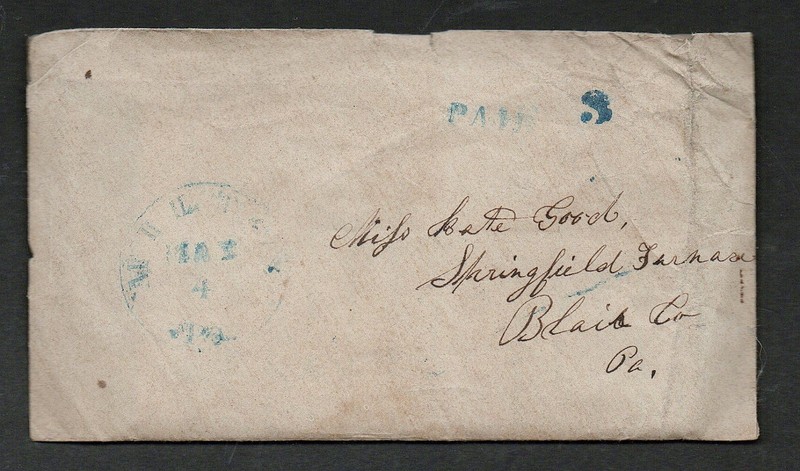 PAID 3
MAR
4
Miss Kate Good,
Springfield Furnace
Blair Co
Pa.